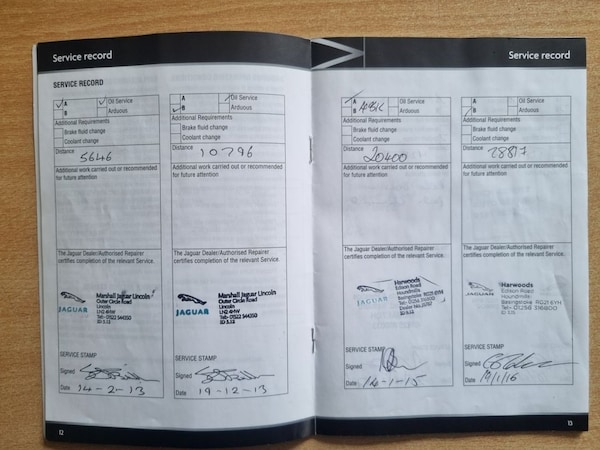 Service record
SERVICE RECORD
A Oil Service
B Arduous
Additional Requirements
Brake fluid change
Coolant change
Distance
5646
Additional work carried out or recommended
for future attention
The Jaguar Dealer/Authorised Repairer
certifies completion of the relevant Service.
JAGUAR
Marshall Jaguar Lincoln
Outer Circle Road
Lincoln
LN2 4HW
Tel:- 01522 544350
SERVICE STAMP
Signed
Date 14-2-13
A Oil Service
B Arduous
Additional Requirements
Brake fluid change
Coolant change
Distance
10796
Additional work carried out or recommended
for future attention
The Jaguar Dealer/Authorised Repairer
certifies completion of the relevant Service.
JAGUAR
Marshall Jaguar Lincoln
Outer Circle Road
Lincoln
LN2 4HW
Tel:- 01522 544350
SERVICE STAMP
Signed
Date 19-12-13
12
Service record
A Oil Service
B Arduous
Additional Requirements
Brake fluid change
Coolant change
Distance
20400
Additional work carried out or recommended
for future attention
The Jaguar Dealer/Authorised Repairer
certifies completion of the relevant Service.
JAGUAR
Harwoods
Edison Road
Houndmills
Basingstoke RG21 6YH
SERVICE STAMP
Signed
Date 14-1-15
A Oil Service
B Arduous
Additional Requirements
Brake fluid change
Coolant change
Distance
28817
Additional work carried out or recommended
for future attention
The Jaguar Dealer/Authorised Repairer
certifies completion of the relevant Service.
JAGUAR
Harwoods
Edison Road
Houndmills
Basingstoke RG21 6YH
Tel:- 01256 316800
SERVICE STAMP
Signed
Date 19/1/16
13